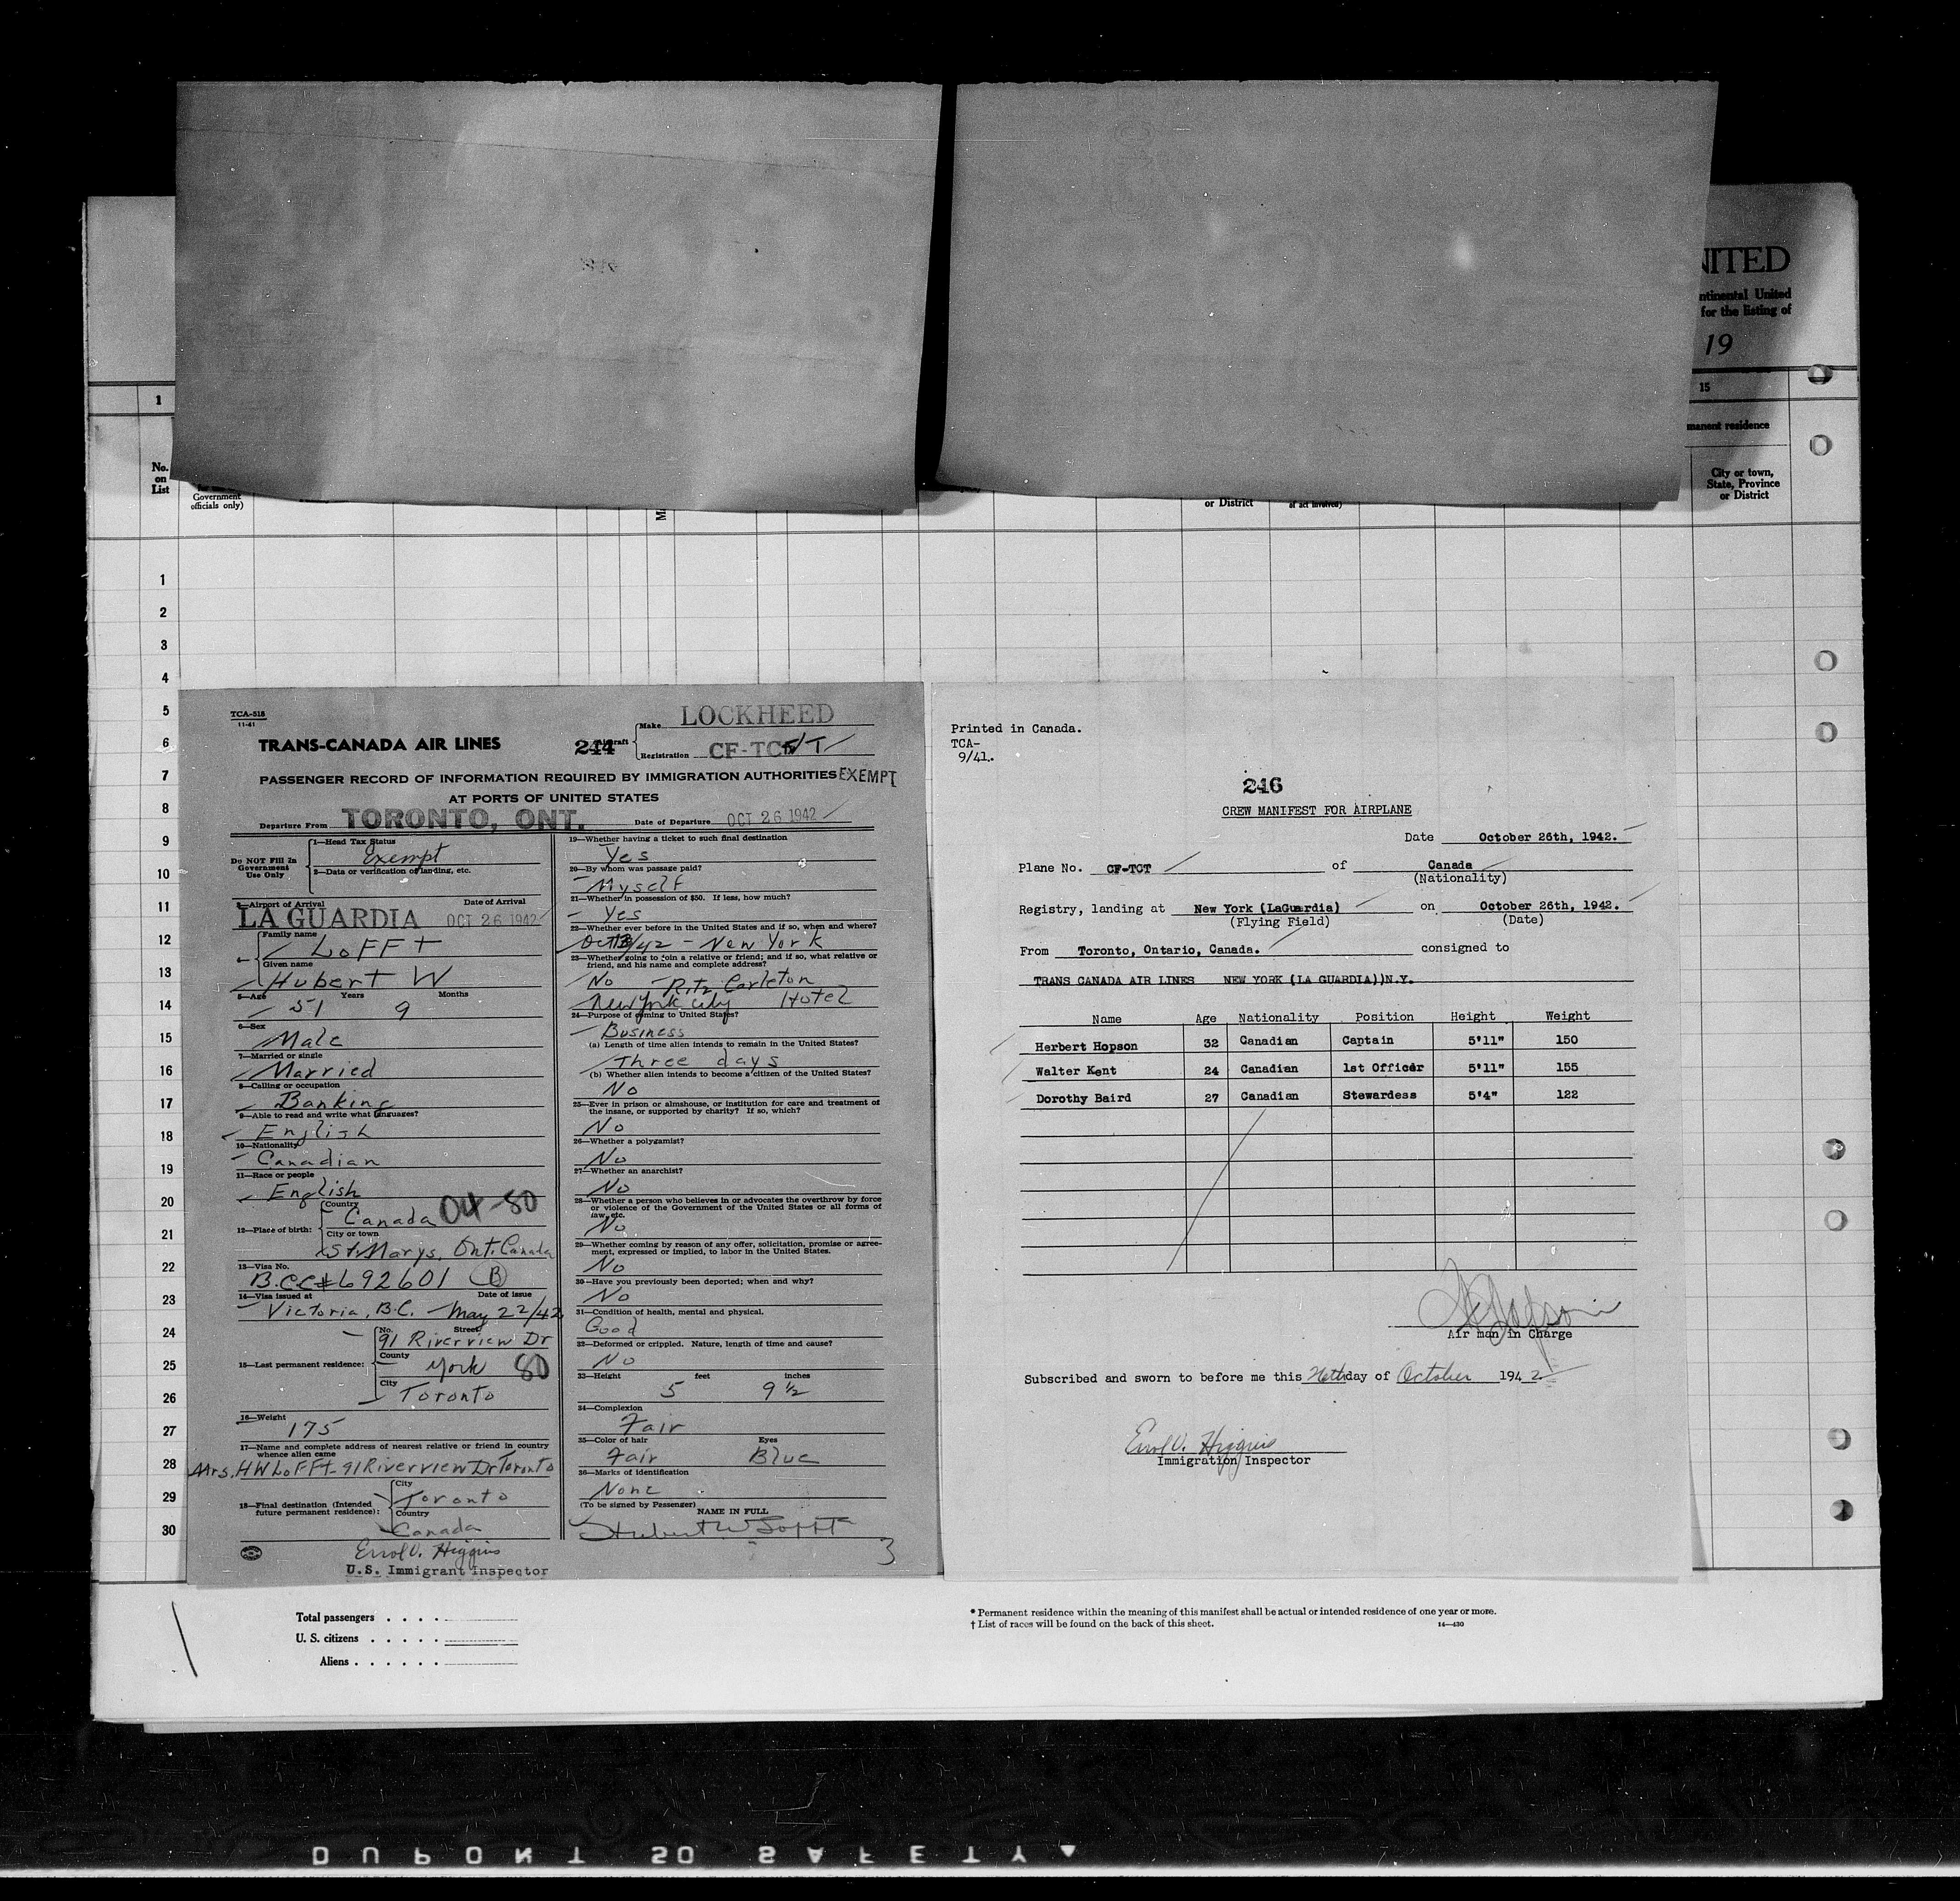 NITED
ntinental United
for the listing of
19
1
15
manent residence
No.
on
List
Government
officials only)
or District
of act involved)
City or town,
State, Province
or District
1
2
3
4
5
6
7
8
9
10
11
12
13
14
15
16
17
18
19
20
21
22
23
24
25
26
27
28
29
30
TCA-518
11-41
TRANS-CANADA AIR LINES
244
Aircraft
Make LOCKHEED
Registration CF-TC T
PASSENGER RECORD OF INFORMATION REQUIRED BY IMMIGRATION AUTHORITIES EXEMPT
AT PORTS OF UNITED STATES
Departure From TORONTO, ONT. Date of Departure OCT 26 1942
Do NOT Fill In
Government
Use Only
1—Head Tax Status
Exempt
2—Data or verification of landing, etc.
3—Airport of Arrival Date of Arrival
LA GUARDIA OCT 26 1942
4—
Family name
LoFFt
Given name
Hubert W
5—Age Years Months
51 9
6—Sex
Male
7—Married or single
Married
8—Calling or occupation
Banking
9—Able to read and write what languages?
English
10—Nationality
Canadian
11—Race or people
English
12—Place of birth:
Country
Canada 04-80
City or town
St. Marys, Ont. Canada
13—Visa No.
B.CC# 692601 B
14—Visa issued at Date of issue
Victoria, B.C. - May 22/42
15—Last permanent residence:
No. Street
91 Riverview Dr
County
York 80
City
Toronto
16—Weight
175
17—Name and complete address of nearest relative or friend in country
whence alien came
Mrs. HW LoFFt - 91 Riverview Dr Toronto
18—Final destination (Intended
future permanent residence):
City
Toronto
Country
Canada
Errol V. Higgins
U.S. Immigrant Inspector
19—Whether having a ticket to such final destination
Yes
20—By whom was passage paid?
Myself
21—Whether in possession of $50. If less, how much?
Yes
22—Whether ever before in the United States and if so, when and where?
Oct /42 - New York
23—Whether going to join a relative or friend; and if so, what relative or
friend, and his name and complete address?
No - Ritz Carleton
New York City Hotel
24—Purpose of coming to United States?
Business
(a) Length of time alien intends to remain in the United States?
Three days
(b) Whether alien intends to become a citizen of the United States?
No
25—Ever in prison or almshouse, or institution for care and treatment of
the insane, or supported by charity? If so, which?
No
26—Whether a polygamist?
No
27—Whether an anarchist?
No
28—Whether a person who believes in or advocates the overthrow by force
or violence of the Government of the United States or all forms of
law, etc.
No
29—Whether coming by reason of any offer, solicitation, promise or agree-
ment, expressed or implied, to labor in the United States.
No
30—Have you previously been deported; when and why?
No
31—Condition of health, mental and physical.
Good
32—Deformed or crippled. Nature, length of time and cause?
No
33—Height feet inches
5 9 ½
34—Complexion
Fair
35—Color of hair Eyes
Fair Blue
36—Marks of identification
None
(To be signed by Passenger)
NAME IN FULL
Hubert W Lofft
3
Printed in Canada.
TCA-
9/41.
246
CREW MANIFEST FOR AIRPLANE
Date October 26th, 1942.
Plane No. CF-TCT of Canada
(Nationality)
Registry, landing at New York (LaGuardia) on October 26th, 1942.
(Flying Field) (Date)
From Toronto, Ontario, Canada. consigned to
TRANS CANADA AIR LINES NEW YORK (LA GUARDIA))N.Y.
Name Age Nationality Position Height Weight
Herbert Hopson 32 Canadian Captain 5'11" 150
Walter Kent 24 Canadian 1st Officer 5'11" 155
Dorothy Baird 27 Canadian Stewardess 5'4" 122
Air man in Charge
Subscribed and sworn to before me this 26th day of October 1942
Errol V. Higgins
Immigration Inspector
Total passengers . . . .
U. S. citizens . . . . .
Aliens . . . . . .
* Permanent residence within the meaning of this manifest shall be actual or intended residence of one year or more.
† List of races will be found on the back of this sheet.
14—430
DUPONT 50 SAFETY